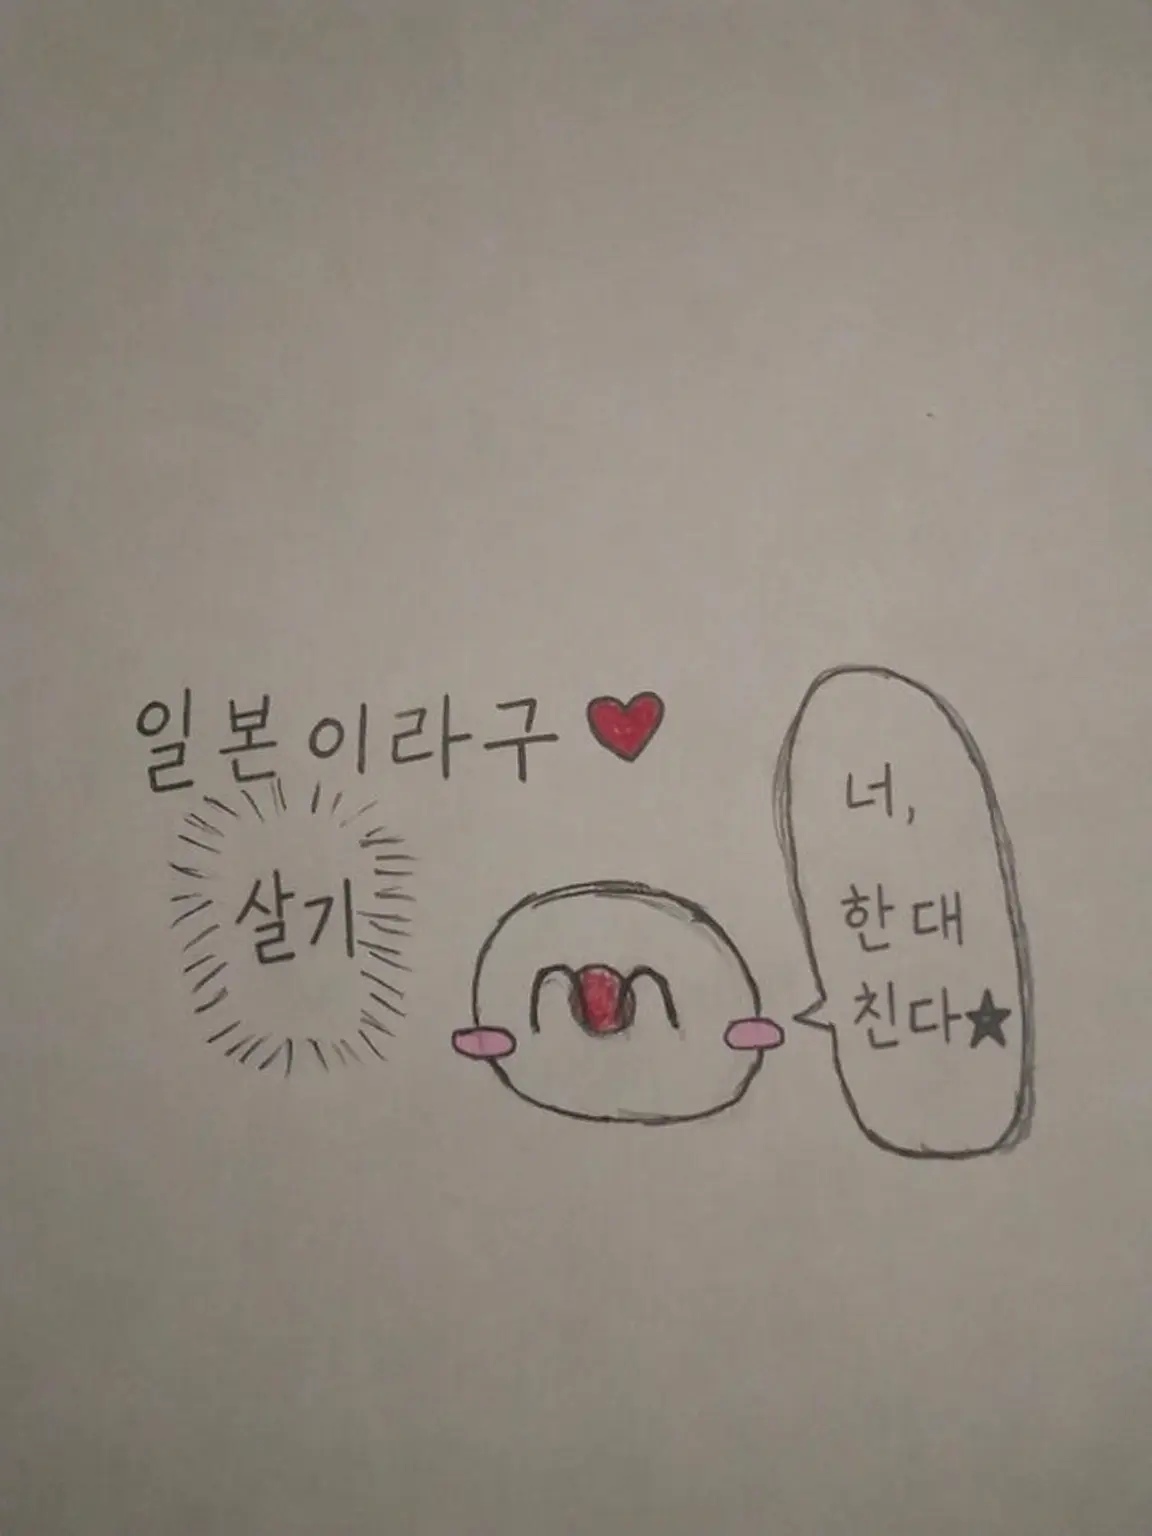 일본이라구♥
살기
너,
한대
친다★